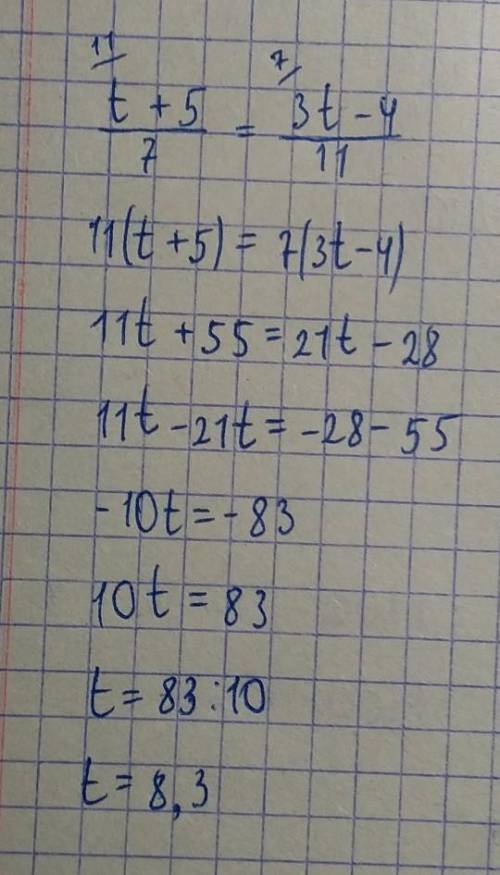 11/ 7/
t + 5 / 7 = 3t - 4 / 11
11(t + 5) = 7(3t - 4)
11t + 55 = 21t - 28
11t - 21t = -28 - 55
-10t = -83
10t = 83
t = 83 : 10
t = 8,3